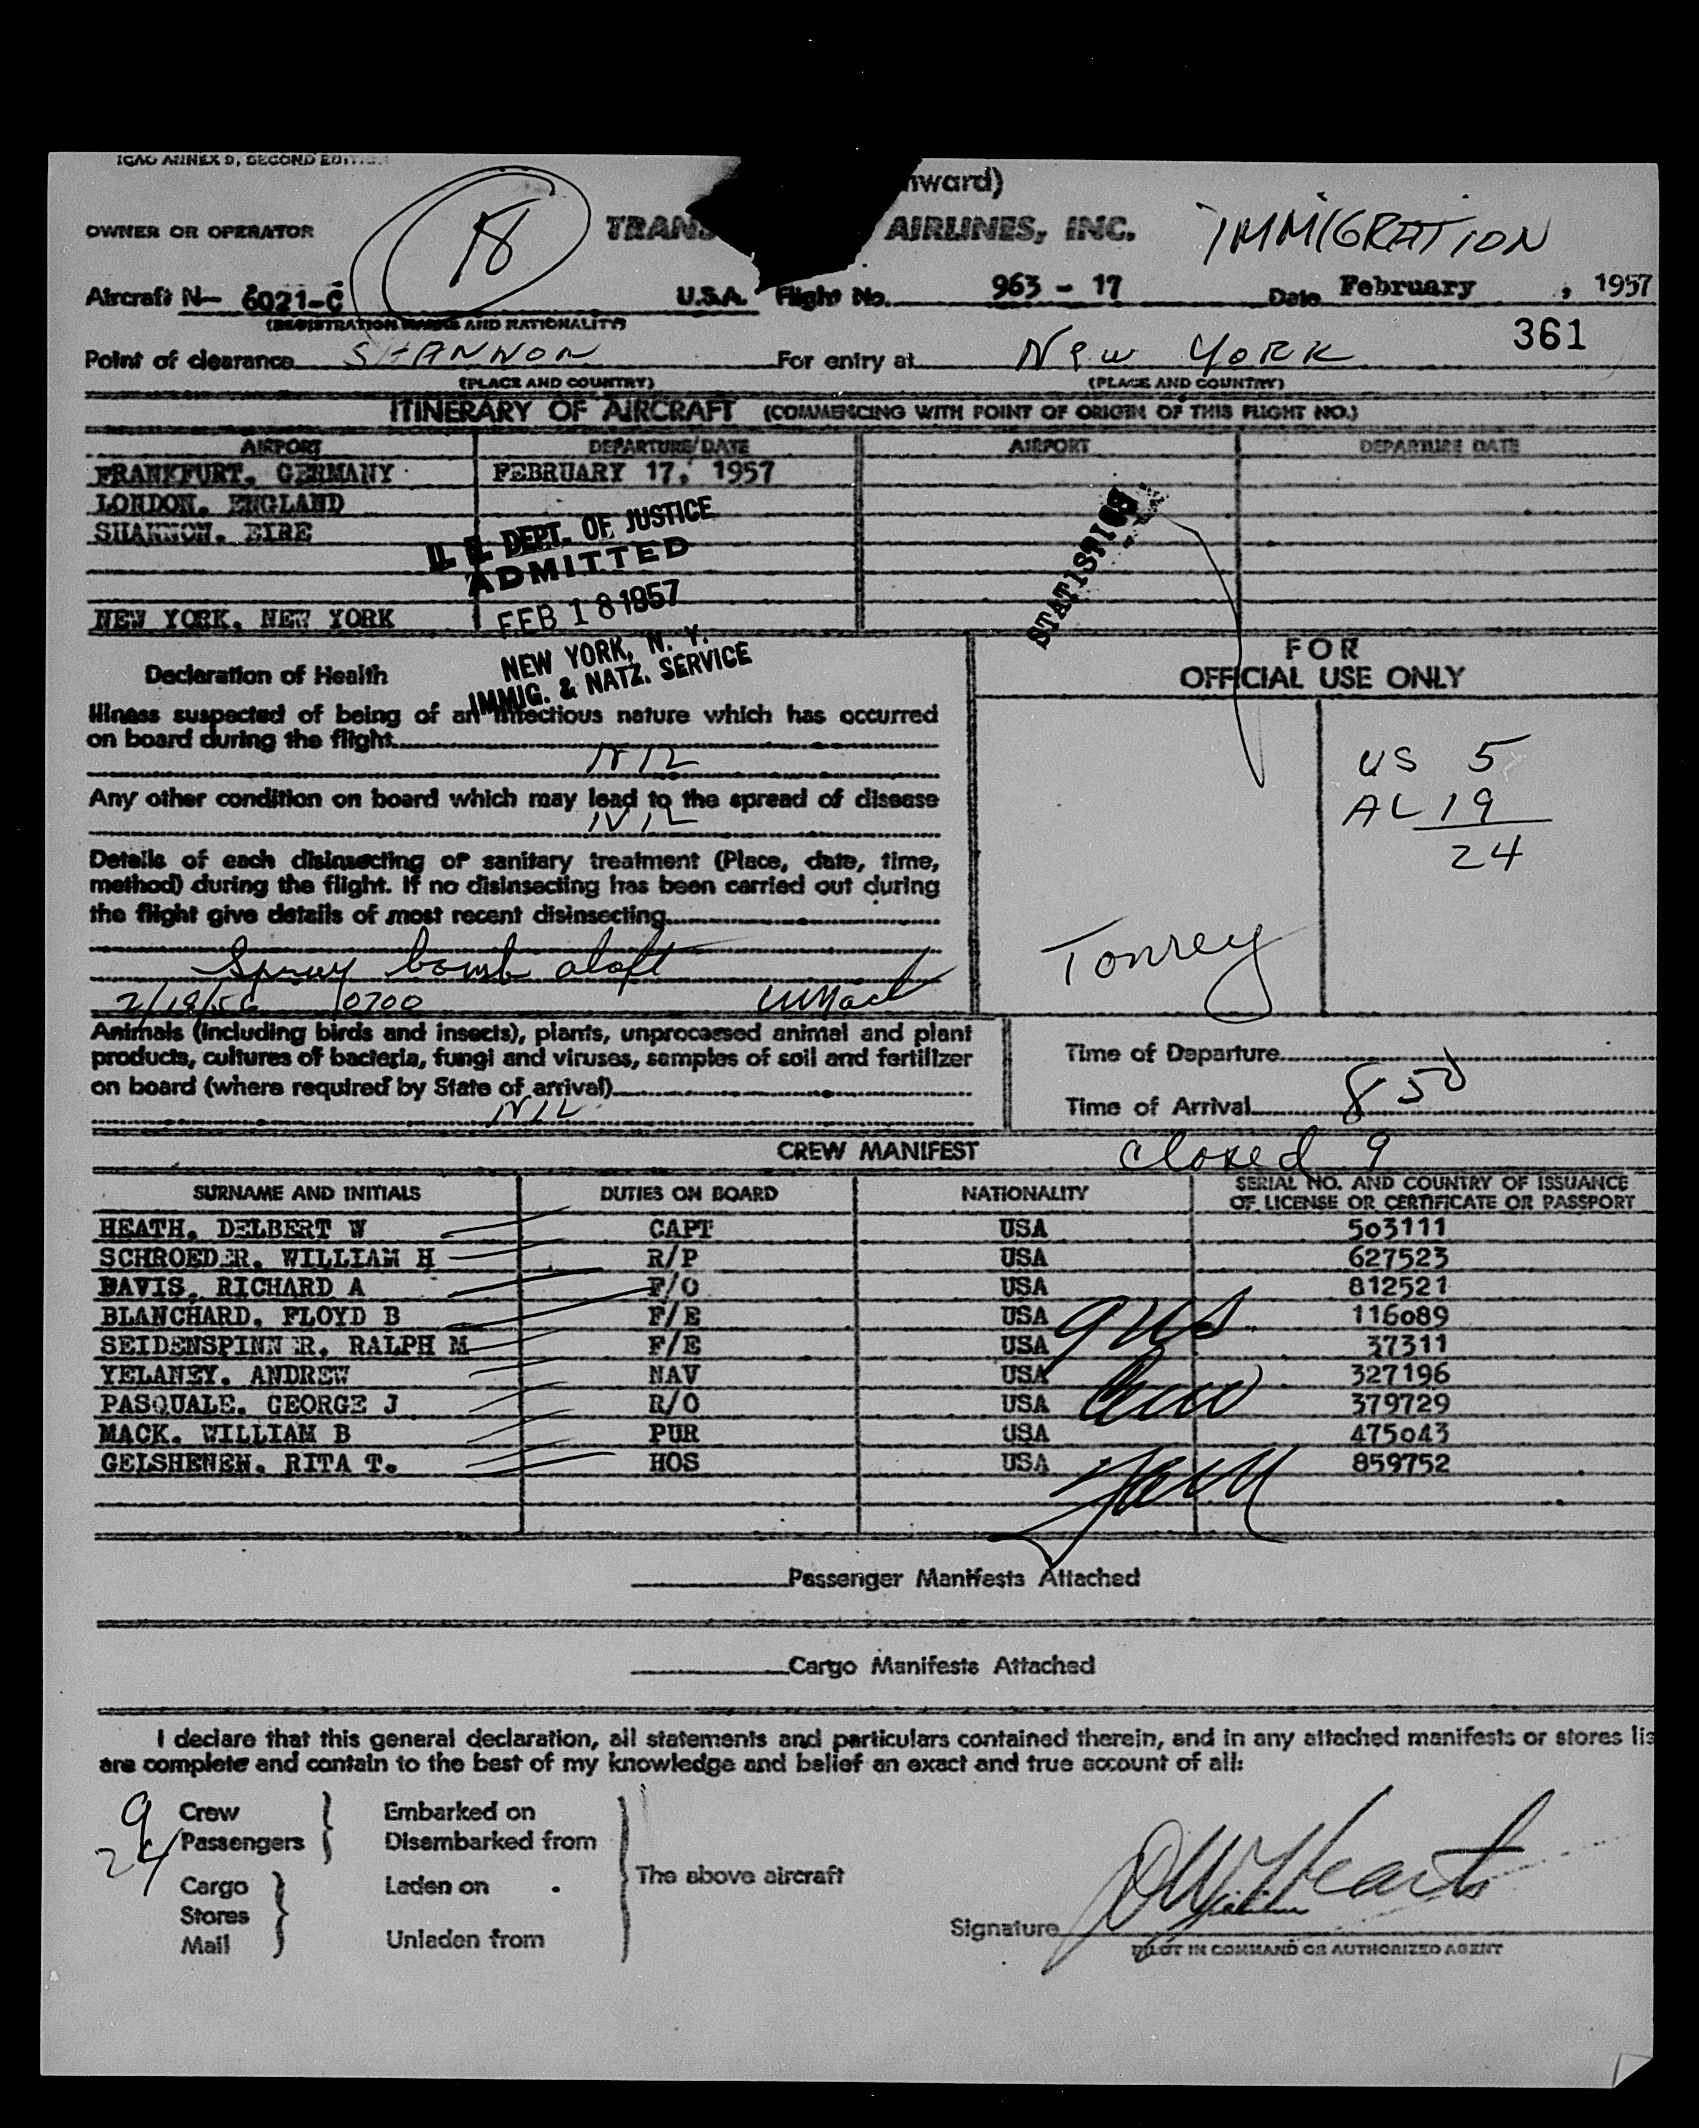 ICAO ANNEX 9, SECOND EDITION
nward)
18
OWNER OR OPERATOR TRANS AIRLINES, INC. IMMIGRATION
Aircraft N- 6021-C U.S.A. Flight No. 963 - 17 Date February , 1957
(REGISTRATION MARKS AND NATIONALITY)
361
Point of clearance SHANNON For entry at New YORK
(PLACE AND COUNTRY) (PLACE AND COUNTRY)
ITINERARY OF AIRCRAFT (COMMENCING WITH POINT OF ORIGIN OF THIS FLIGHT NO.)
AIRPORT DEPARTURE DATE AIRPORT DEPARTURE DATE
FRANKFURT, GERMANY FEBRUARY 17, 1957
LONDON, ENGLAND
SHANNON, EIRE
U. S. DEPT. OF JUSTICE
ADMITTED
FEB 18 1957
NEW YORK, N. Y.
IMMIG. & NATZ. SERVICE
STATISTICS
NEW YORK, NEW YORK
Declaration of Health
Illness suspected of being of an infectious nature which has occurred
on board during the flight
NIL
Any other condition on board which may lead to the spread of disease
NIL
Details of each disinsecting or sanitary treatment (Place, date, time,
method) during the flight. If no disinsecting has been carried out during
the flight give details of most recent disinsecting
Spray bomb aloft
2/18/56 0700 WMack
FOR
OFFICIAL USE ONLY
US 5
AL 19
24
Tonrey
Animals (including birds and insects), plants, unprocessed animal and plant
products, cultures of bacteria, fungi and viruses, samples of soil and fertilizer
on board (where required by State of arrival)
NIL
Time of Departure
Time of Arrival 850
CREW MANIFEST closed 9
SURNAME AND INITIALS DUTIES ON BOARD NATIONALITY SERIAL NO. AND COUNTRY OF ISSUANCE
OF LICENSE OR CERTIFICATE OR PASSPORT
HEATH, DELBERT W CAPT USA 503111
SCHROEDER, WILLIAM H R/P USA 627523
DAVIS, RICHARD A F/O USA 812521
BLANCHARD, FLOYD B F/E USA 116089
SEIDENSPINNER, RALPH M F/E USA 37311
YELANEY, ANDREW NAV USA 327196
PASQUALE, GEORGE J R/O USA 379729
MACK, WILLIAM B PUR USA 475043
GELSHENEN, RITA T. HOS USA 859752
9 US
Crew
Passenger Manifests Attached
Cargo Manifests Attached
I declare that this general declaration, all statements and particulars contained therein, and in any attached manifests or stores lis
are complete and contain to the best of my knowledge and belief an exact and true account of all:
9 Crew Embarked on
24 Passengers Disembarked from
The above aircraft
Cargo Laden on
Stores
Mail Unladen from
Signature
PILOT IN COMMAND OR AUTHORIZED AGENT